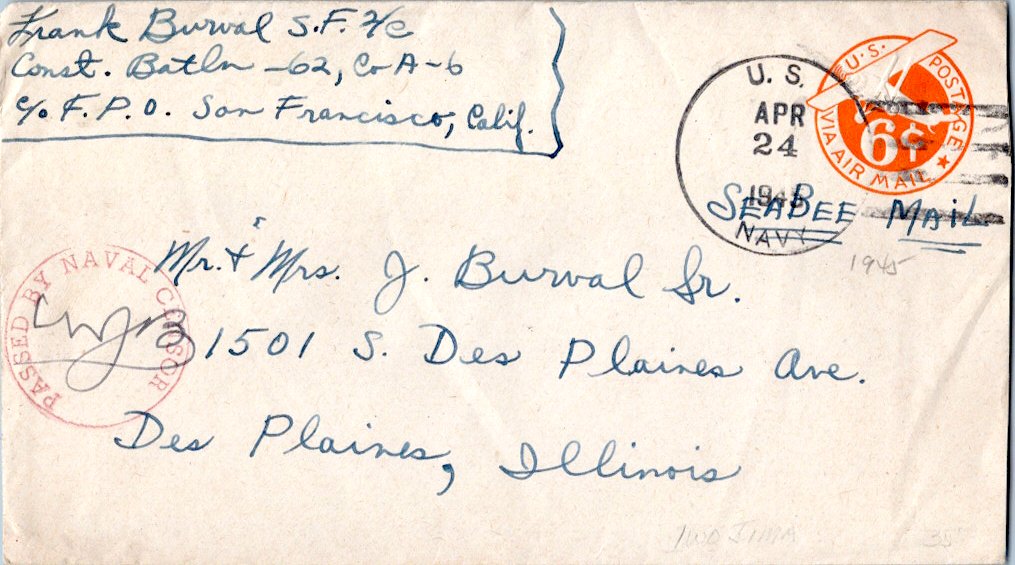 Frank Burval S.F. 2/c
Const. Batln -62, Co A-6
c/o F.P.O. San Francisco, Calif.
U.S.
APR
24
1945
NAVY
U.S. POSTAGE
6¢
VIA AIR MAIL
SEABEE MAIL
1945
PASSED BY NAVAL CENSOR
Mr. & Mrs. J. Burval Sr.
1501 S. Des Plaines Ave.
Des Plaines, Illinois
IWO JIMA